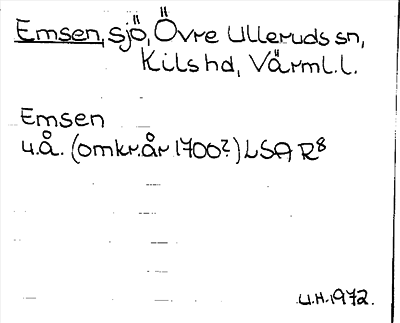 Emsen, sjö, Övre Ulleruds sn,
Kils hd, Värml.l.
Emsen
u.å. (omkr.år 1700?) LSA R8
U.H.1972.